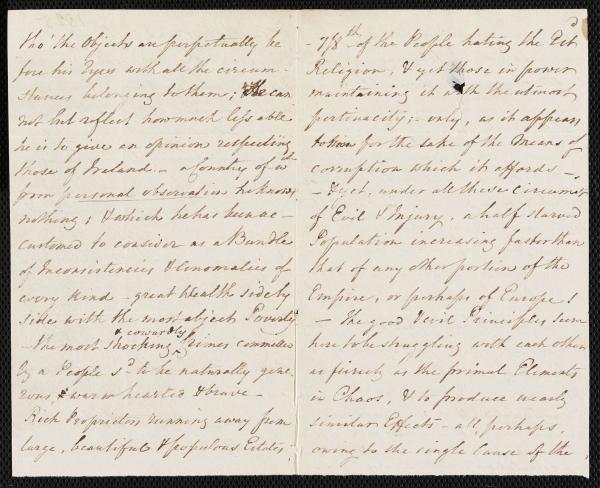 tho' the Objects are perpetually be
fore his Eyes with all the circum-
stances belonging to them; He can
not but reflect how much less able
he is to give an opinion respecting
those of Ireland. - a Country of wch
from personal observation he knows
nothing; & which he has been ac-
customed to consider as a Bundle
of Inconsistencies & Anomalies of
every kind - great Wealth side by
side with the most abject Poverty
& cowardly
- the most shocking Crimes committed
by a People sd to be naturally gene
rous, & warm hearted & brave -
Rich Proprietors running away from
large, beautiful & populous Estates,
7/8th of the People hating the Estd
Religion, & yet those in power
maintaining it with the utmost
pertinacity; - only, as it appears
for the sake of the Means of
corruption which it affords -
- & yet, under all these circumst
of Evil & Injury, a half starved
Population increasing faster than
that of any other portion of the
Empire, or perhaps of Europe!
- The good & evil Principles seem
here to be struggling with each other
as fiercely as the primal Elements
in Chaos, & to produce nearly
similar Effects - all, perhaps,
owing to the single Cause of the